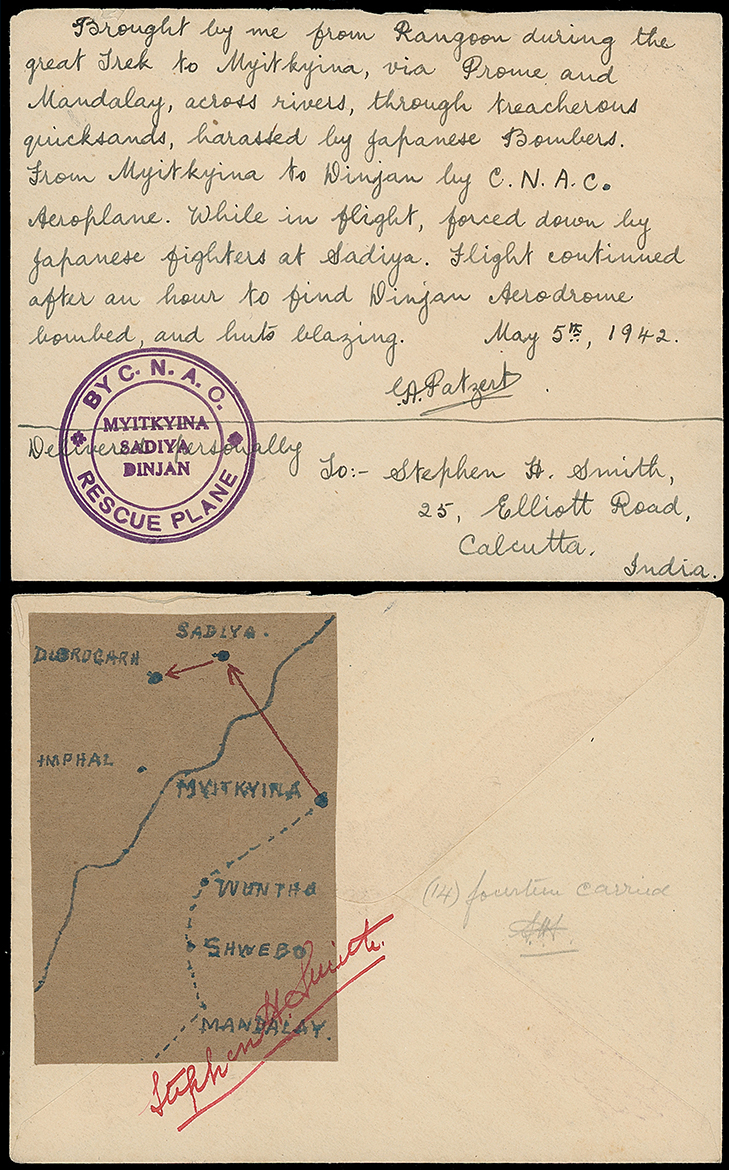 Brought by me from Rangoon during the
great Trek to Myitkyina, via Prome and
Mandalay, across rivers, through treacherous
quicksands, harassed by Japanese Bombers.
From Myitkyina to Dinjan by C. N. A. C.
Aeroplane. While in flight, forced down by
Japanese fighters at Sadiya. Flight continued
after an hour to find Dinjan Aerodrome
bombed, and huts blazing. May 5th, 1942.
C.A. Patzert.
BY C. N. A. C.
MYITKYINA
SADIYA
DINJAN
RESCUE PLANE
Delivered personally
To:- Stephen H. Smith,
25, Elliott Road,
Calcutta.
India.
SADIYA.
DIBROGARH
IMPHAL
MYITKYINA
WUNTHO
SHWEBO
MANDALAY.
Stephen H. Smith.
(14) fourteen carried